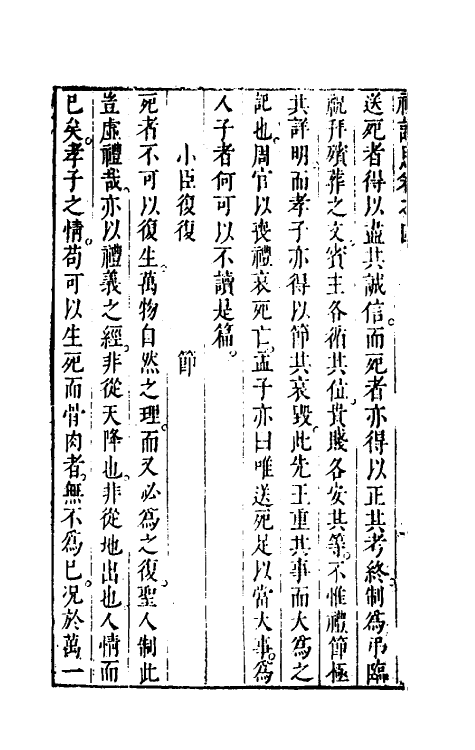 送死者得以盡其誠信而死者亦得以正其考終制為弔臨
殯葬之文賓主各循其位貴賤各安其等不惟禮節極
其詳明而孝子亦得以節其哀毀此先王重其事而大為之
記也周官以喪禮哀死亡孟子亦曰唯送死足以當大事為
人子者何可以不讀是篇
小臣復復 節
死者不可以復生萬物自然之理而又必為之復聖人制此
豈虛禮哉亦以禮義之經非從天降也非從地出也人情而
已矣孝子之情苟可以生死而骨肉者無不為已況於萬一